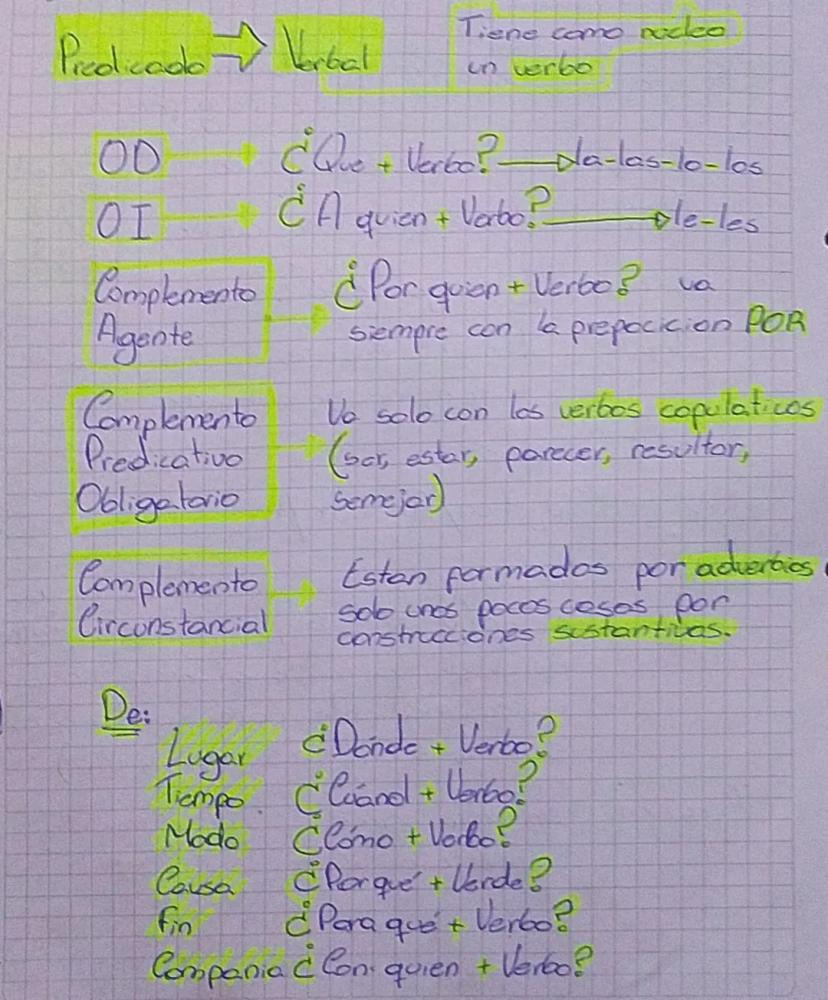 Predicado Verbal
Tiene como nucleo
un verbo
OD ¿Que + Verbo? la-las-lo-los
OI ¿A quien + Verbo? le-les
Complemento
Agente
¿Por quien + Verbo? va
siempre con la prepocicion POR
Complemento
Predicativo
Obligatorio
Va solo con los verbos copulaticos
(ser, estar, parecer, resultar,
semejar)
Complemento
Circunstancial
Estan formados por adverbios
solo unos pocos casos por
construcciones sustantivas.
De:
Lugar ¿Dónde + Verbo?
Tiempo ¿Cuánd + Verbo?
Modo ¿Cómo + Verbo?
Causa ¿Por qué + Verde?
Fin ¿Para qué + Verbo?
Compania ¿Con quien + Verbo?